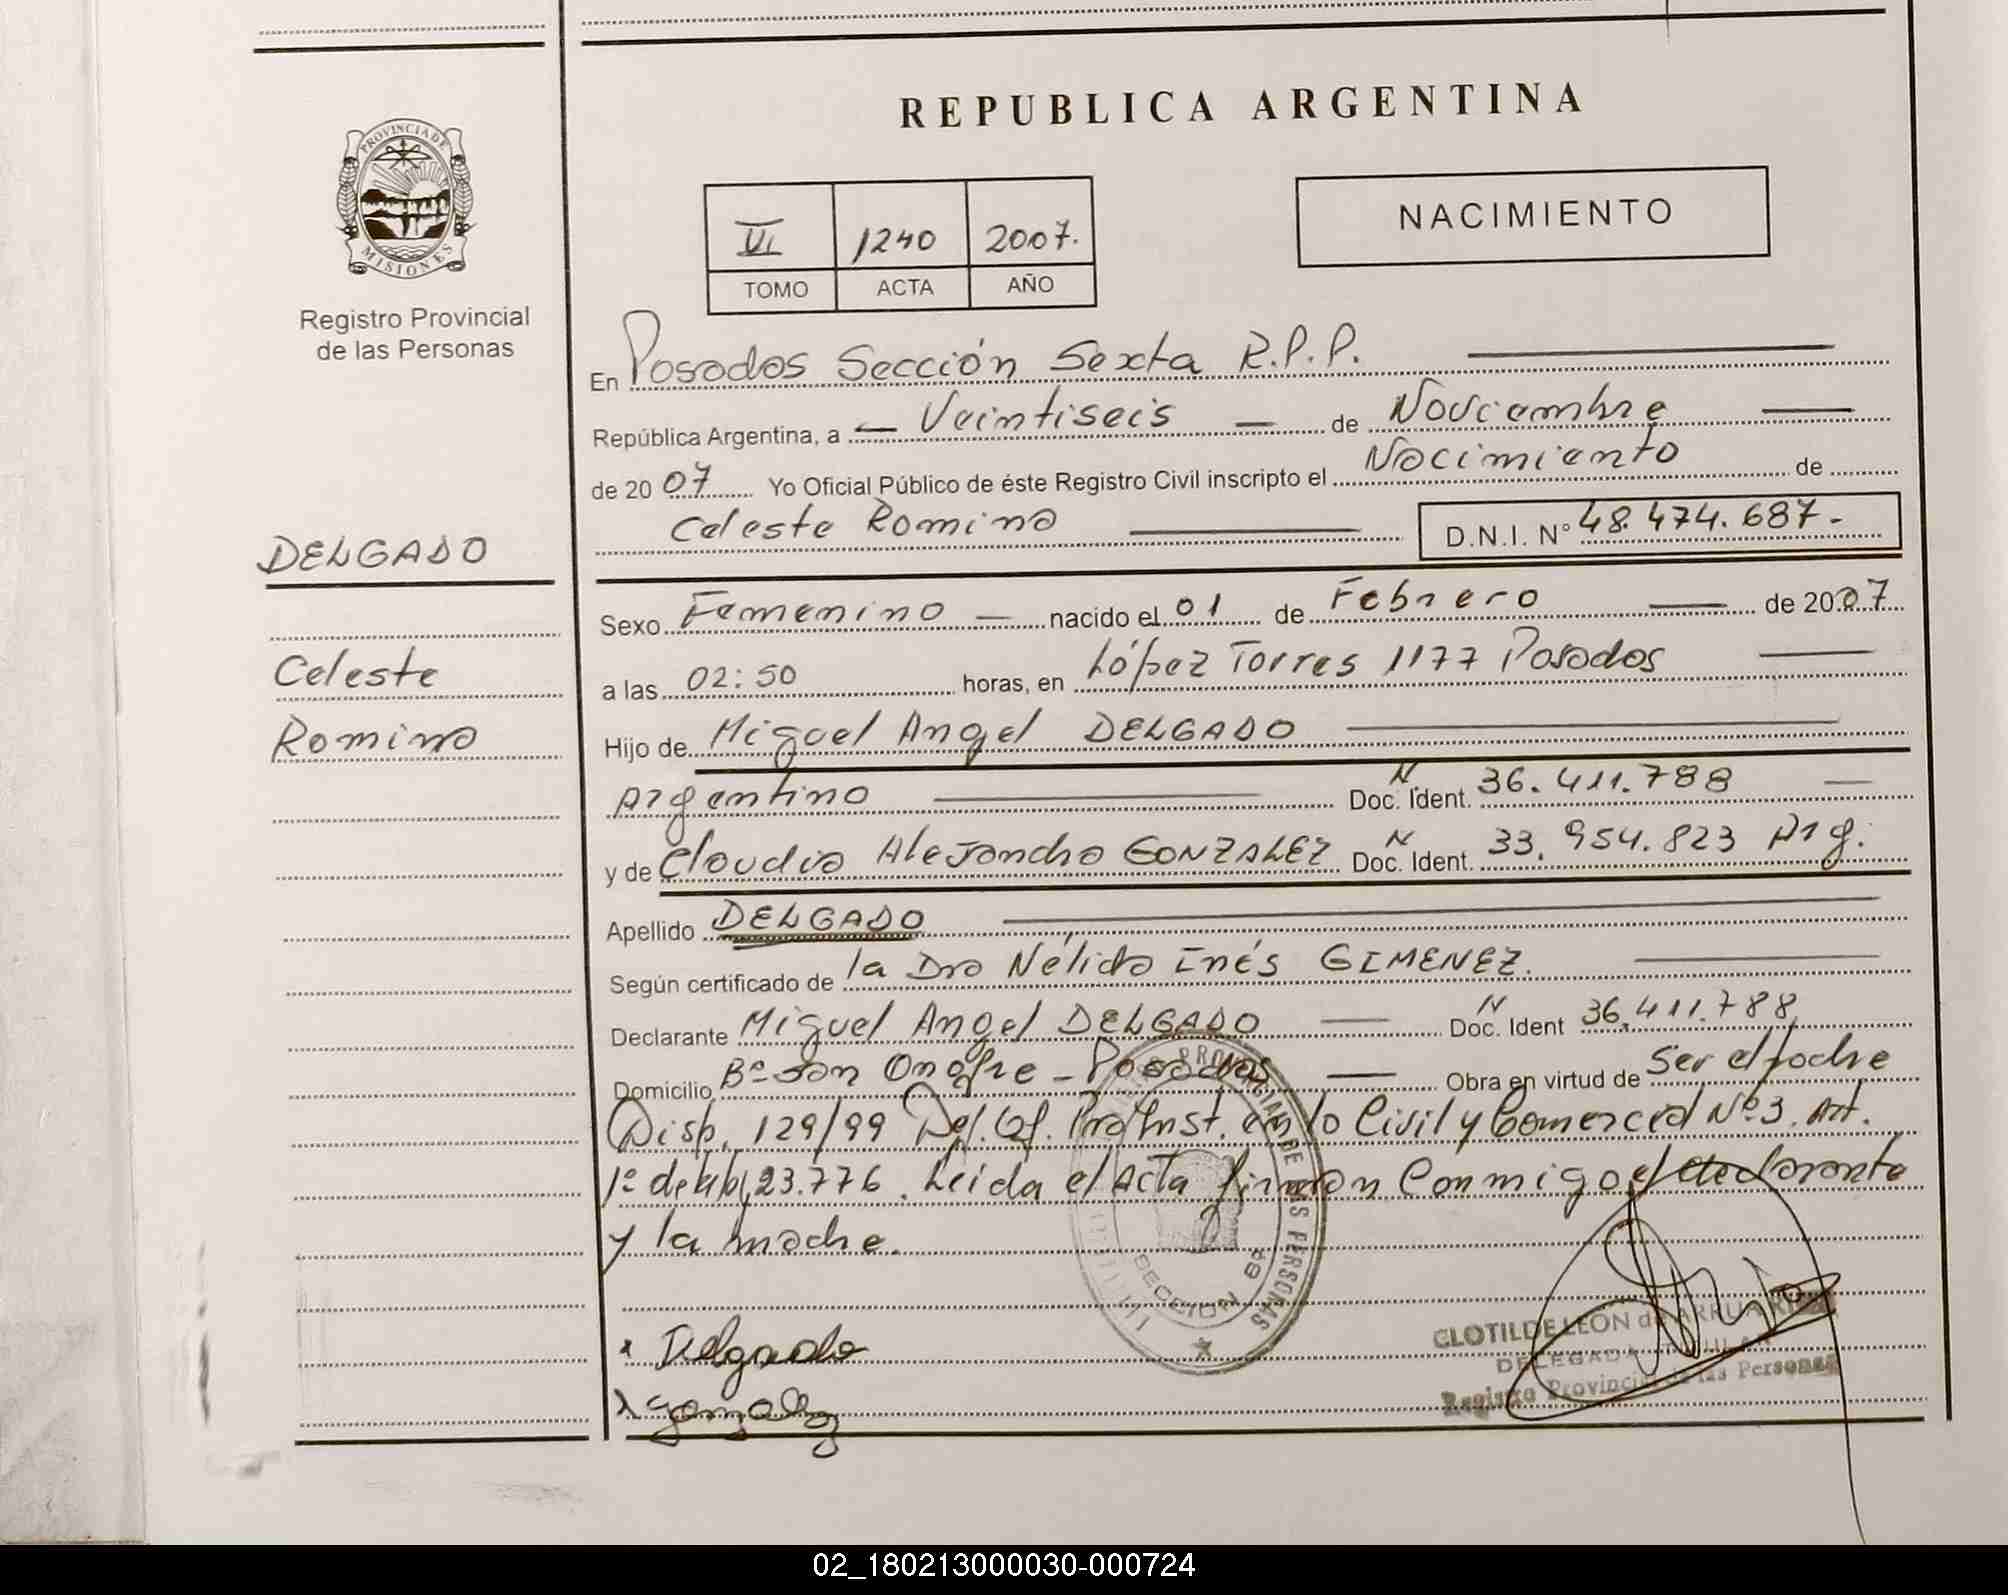 REPUBLICA ARGENTINA
PROVINCIA DE
MISIONES
Registro Provincial
de las Personas
VI 1240 2007.
TOMO ACTA AÑO
NACIMIENTO
En Posadas Sección Sexta R.P.P.
República Argentina, a Veintiseis de Noviembre
de 2007 Yo Oficial Público de éste Registro Civil inscripto el Nacimiento de
Celeste Romina D.N.I. Nº 48.474.687.-
DELGADO
Celeste
Romina
Sexo Femenino nacido el 01 de Febrero de 2007
a las 02:50 horas, en López Torres 1177 Posadas
Hijo de Miguel Angel DELGADO
Argentino Doc. Ident. N 36.411.788
y de Claudia Alejandra GONZALEZ Doc. Ident. N 33.954.823 Arg.
Apellido DELGADO
Según certificado de la Dra Nélida Inés GIMENEZ.
Declarante Miguel Angel DELGADO Doc. Ident N 36.411.788
Domicilio Bº San Onofre - Posadas Obra en virtud de Ser el padre
Disp. 129/99 Inst. en lo Civil y Comercial Nº 3. Art.
1º de 23.776. Leida el Acta firman Conmigo el declarante
y la madre.
PROVINCIAL DE LAS PERSONAS
SECCION 6ª
Delgado
Gonzalez
CLOTILDE LEON de ARRUA
DELEGADA TITULAR
Registro Provincial de las Personas
02_180213000030-000724